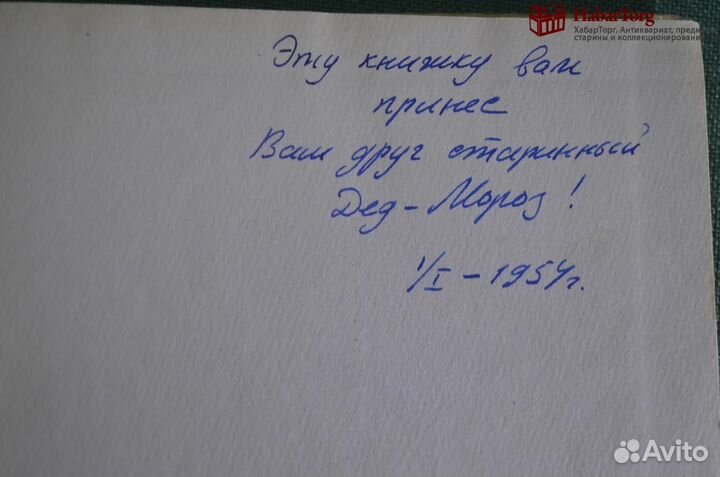 HabarTorg
ХабарТорг. Антиквариат, пред
старины и коллекционирован
Эту книжку вам
принес
Ваш друг старинный
Дед-Мороз!
1/I - 1954г.
Avito